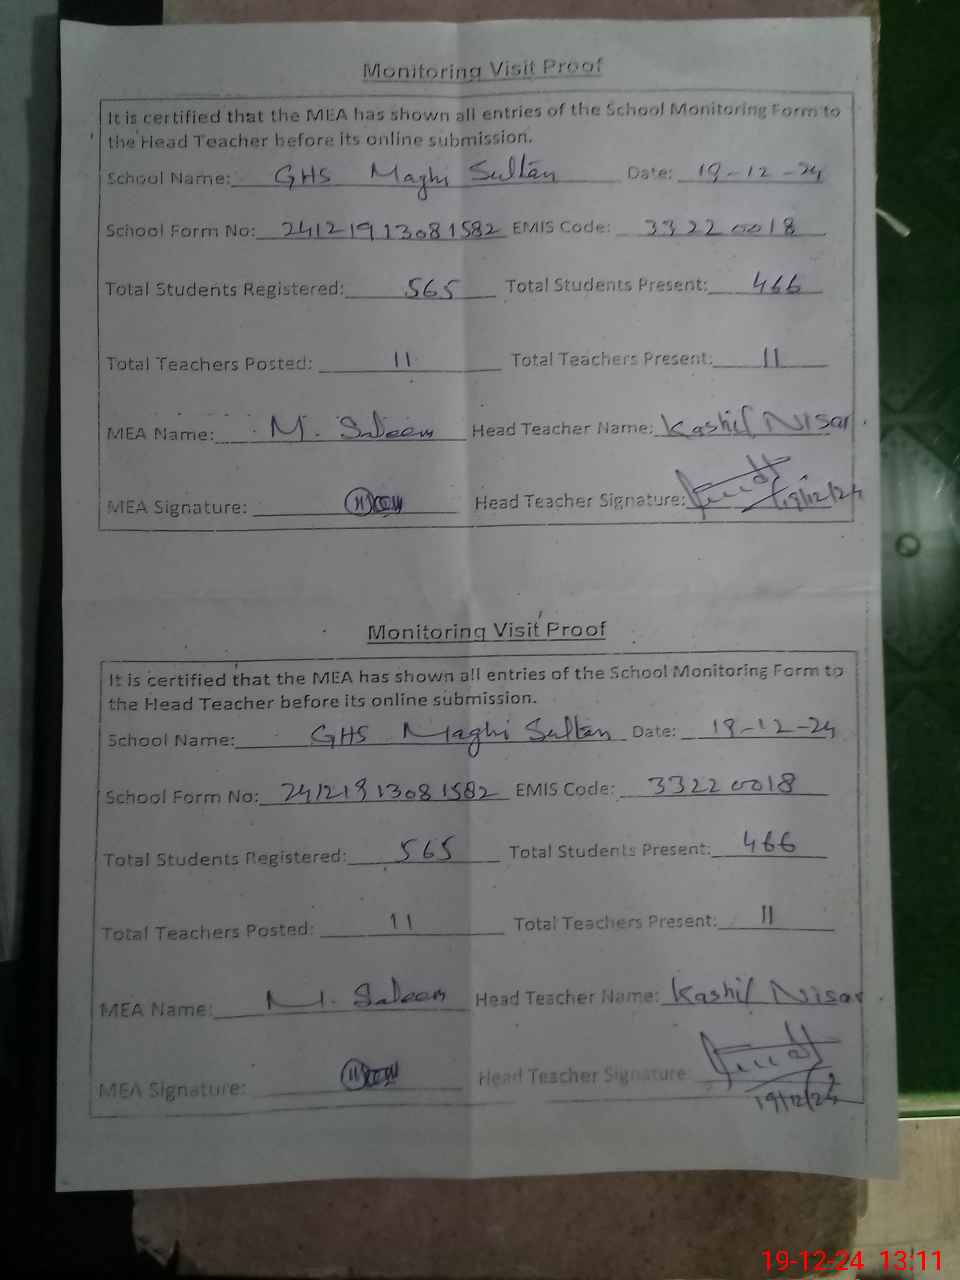 Monitoring Visit Proof
It is certified that the MEA has shown all entries of the School Monitoring Form to
the Head Teacher before its online submission.
School Name: GHS Maghi Sultan Date: 19-12-24
School Form No: 241219913081582 EMIS Code: 33220018
Total Students Registered: 565 Total Students Present: 466
Total Teachers Posted: 11 Total Teachers Present: 11
MEA Name: M. Saleem Head Teacher Name: Kashif Nisar
MEA Signature: Head Teacher Signature: 19/12/24
Monitoring Visit Proof
It is certified that the MEA has shown all entries of the School Monitoring Form to
the Head Teacher before its online submission.
School Name: GHS Maghi Sultan Date: 19-12-24
School Form No: 24121913081582 EMIS Code: 33220018
Total Students Registered: 565 Total Students Present: 466
Total Teachers Posted: 11 Total Teachers Present: 11
MEA Name: M. Saleem Head Teacher Name: Kashif Nisar
MEA Signature: Head Teacher Signature:
19/12/24
19-12-24 13:11